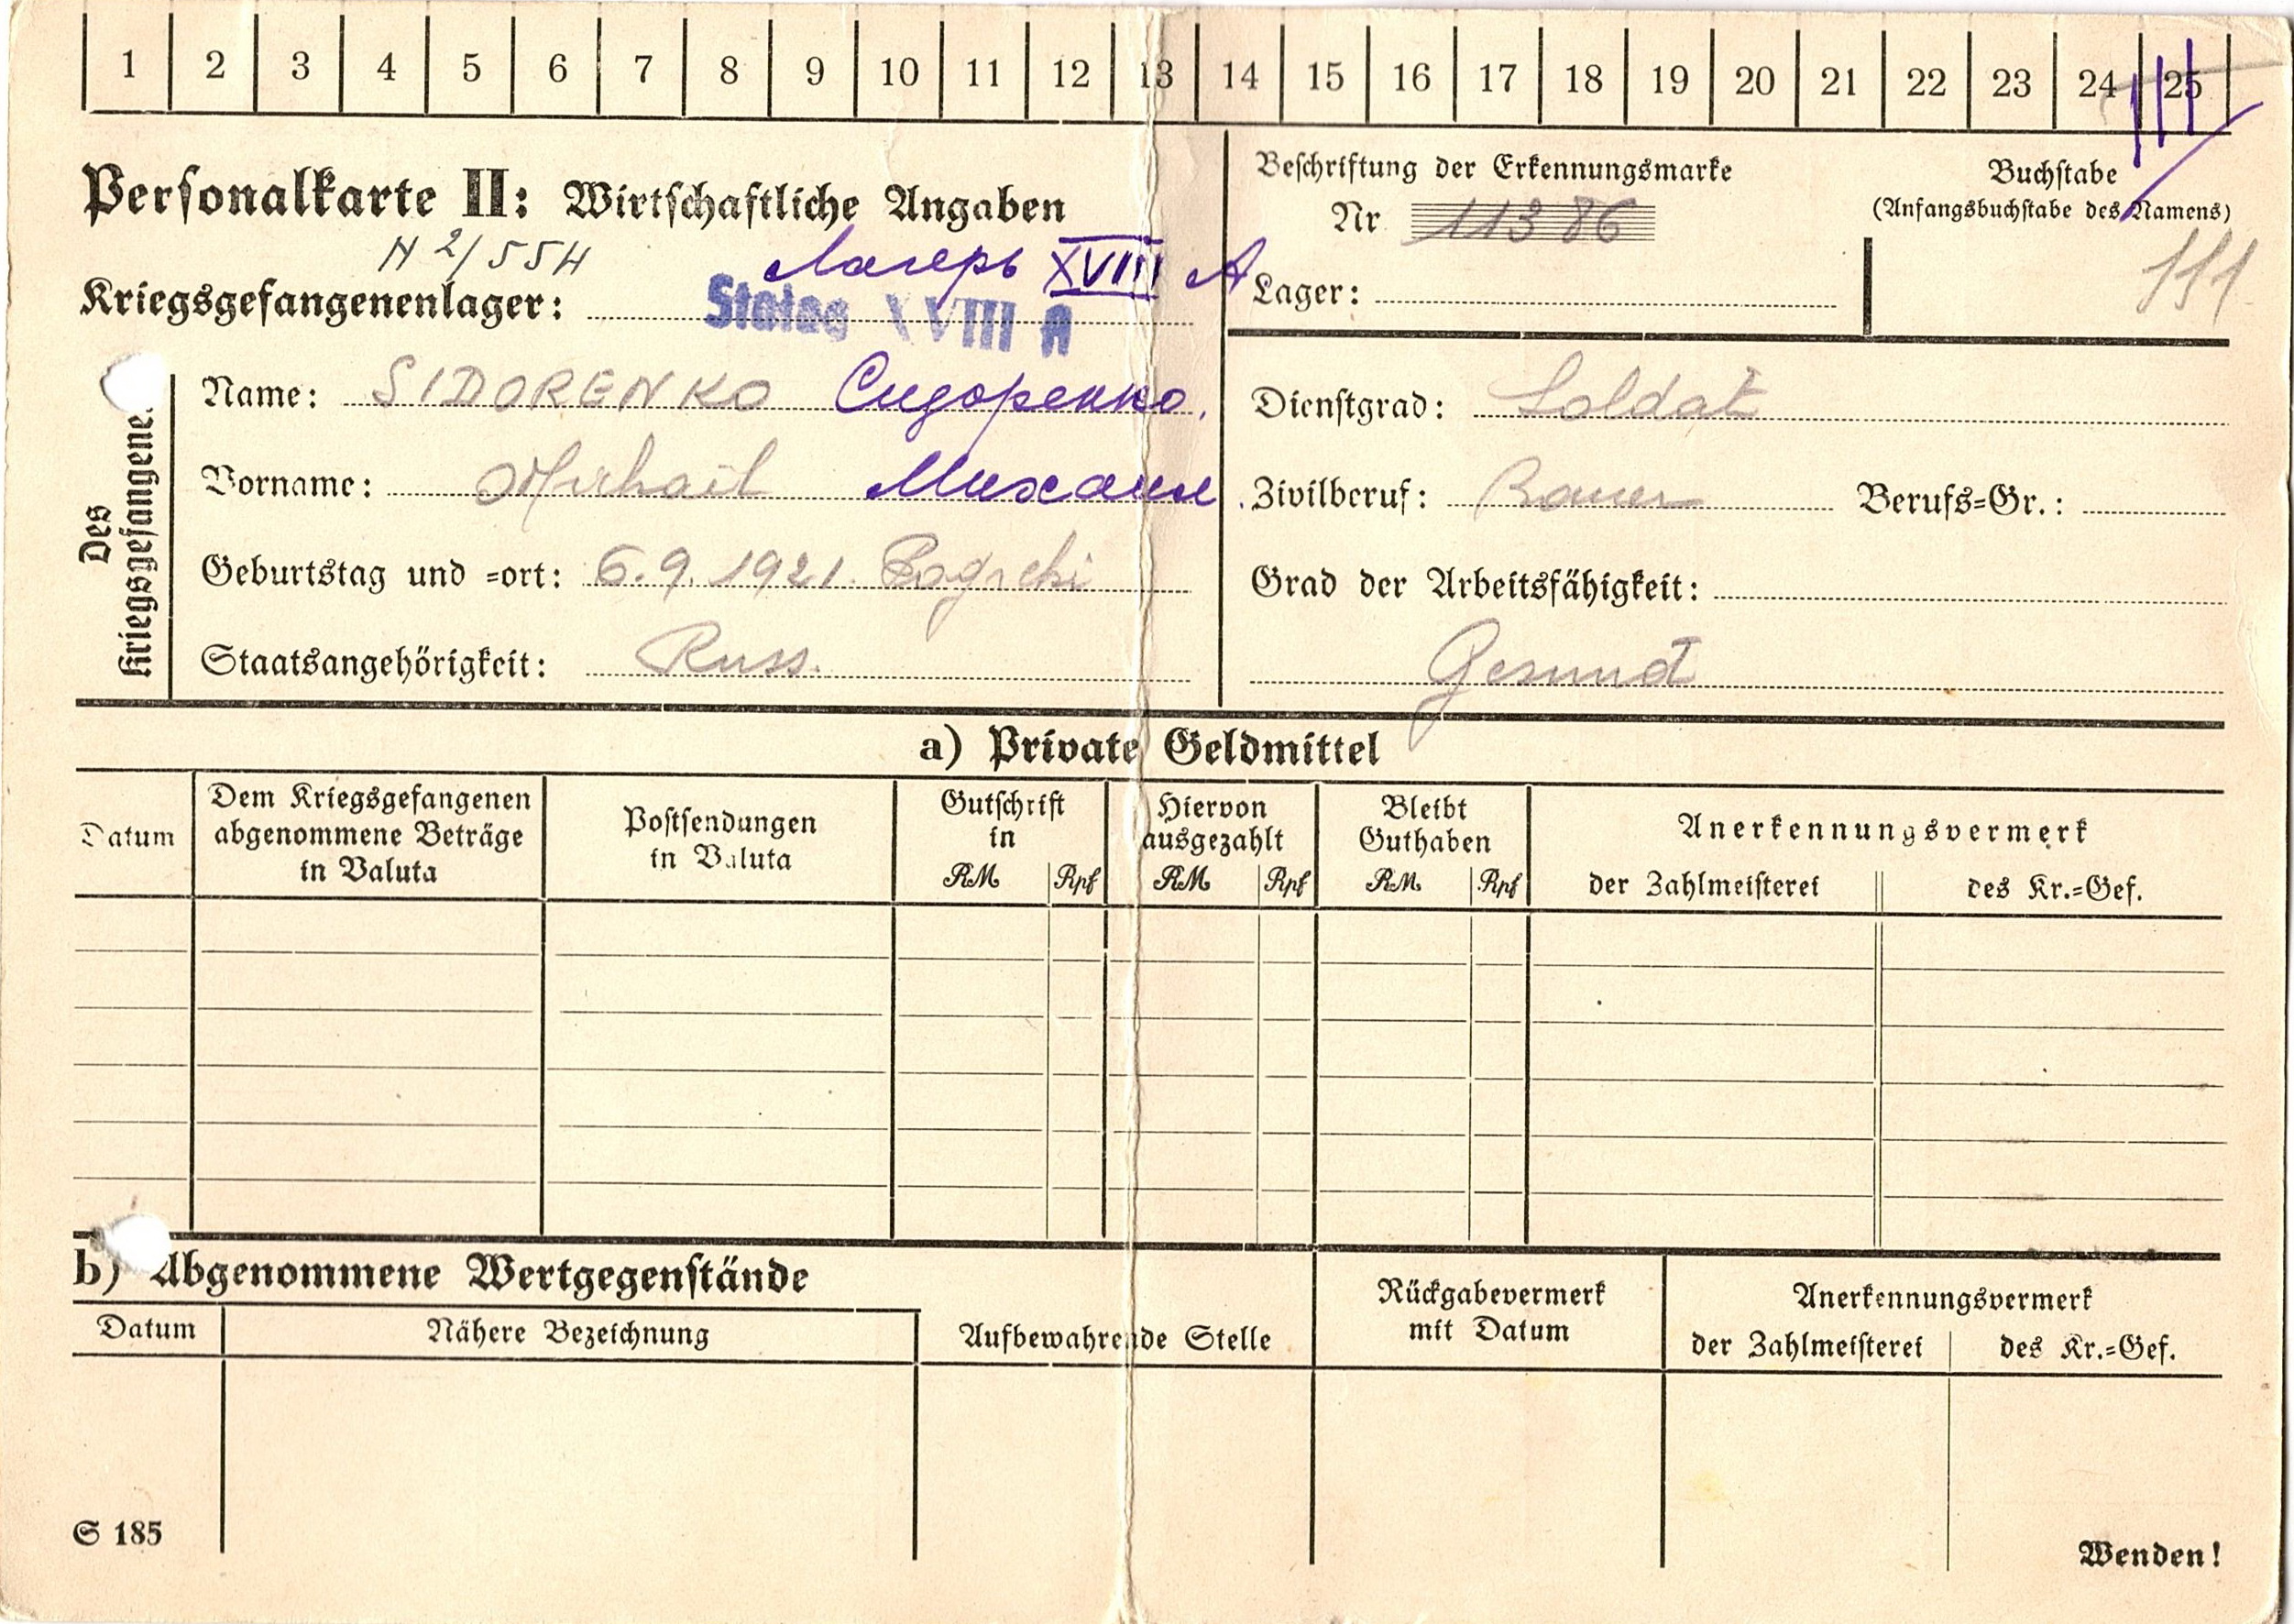 1 2 3 4 5 6 7 8 9 10 11 12 13 14 15 16 17 18 19 20 21 22 23 24 25
Personalkarte II: Wirtschaftliche Angaben
Beschriftung der Erkennungsmarke
Nr 11386
Buchstabe
(Anfangsbuchstabe des Namens)
Лагерь XVIII А
Kriegsgefangenenlager: Stalag XVIII A
Lager:
Des Kriegsgefangenen
Name: SIDORENKO Сидоренко.
Vorname: Michail Михаил
Geburtstag und =ort: 6.9.1921.
Staatsangehörigkeit: Russ.
Dienstgrad: Soldat
Zivilberuf: Bauer Berufs=Gr.:
Grad der Arbeitsfähigkeit:
Gesund
a) Private Geldmittel
Datum
Dem Kriegsgefangenen
abgenommene Beträge
in Valuta
Postsendungen
in Valuta
Gutschrift
in
RM Rpf
Hiervon
ausgezahlt
RM Rpf
Bleibt
Guthaben
RM Rpf
Anerkennungsvermerk
der Zahlmeisterei des Kr.=Gef.
b) Abgenommene Wertgegenstände
Datum Nähere Bezeichnung
Aufbewahrende Stelle
Rückgabevermerk
mit Datum
Anerkennungsvermerk
der Zahlmeisterei des Kr.=Gef.
S 185
Wenden!